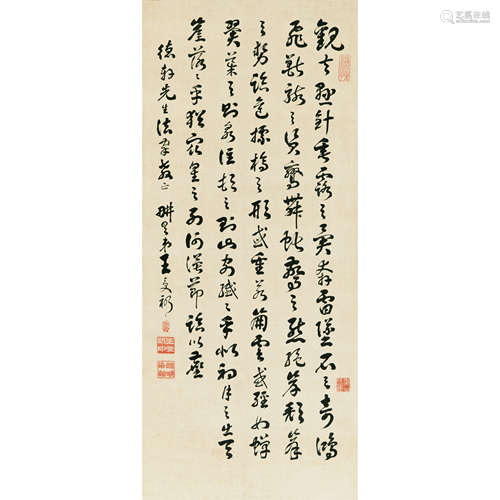 觀夫懸針垂露之異奔雷墜石之奇鴻
飛獸駭之資鸞舞蛇驚之態絕岸頹峰
之勢臨危據槁之形或重若崩雲或輕如蟬
翼導之則泉注頓之則山安纖〻乎似初月之出天
崖落〻乎猶眾星之列河漢節臨以應
德軒先生法家教正 弟王文
艺狐在线